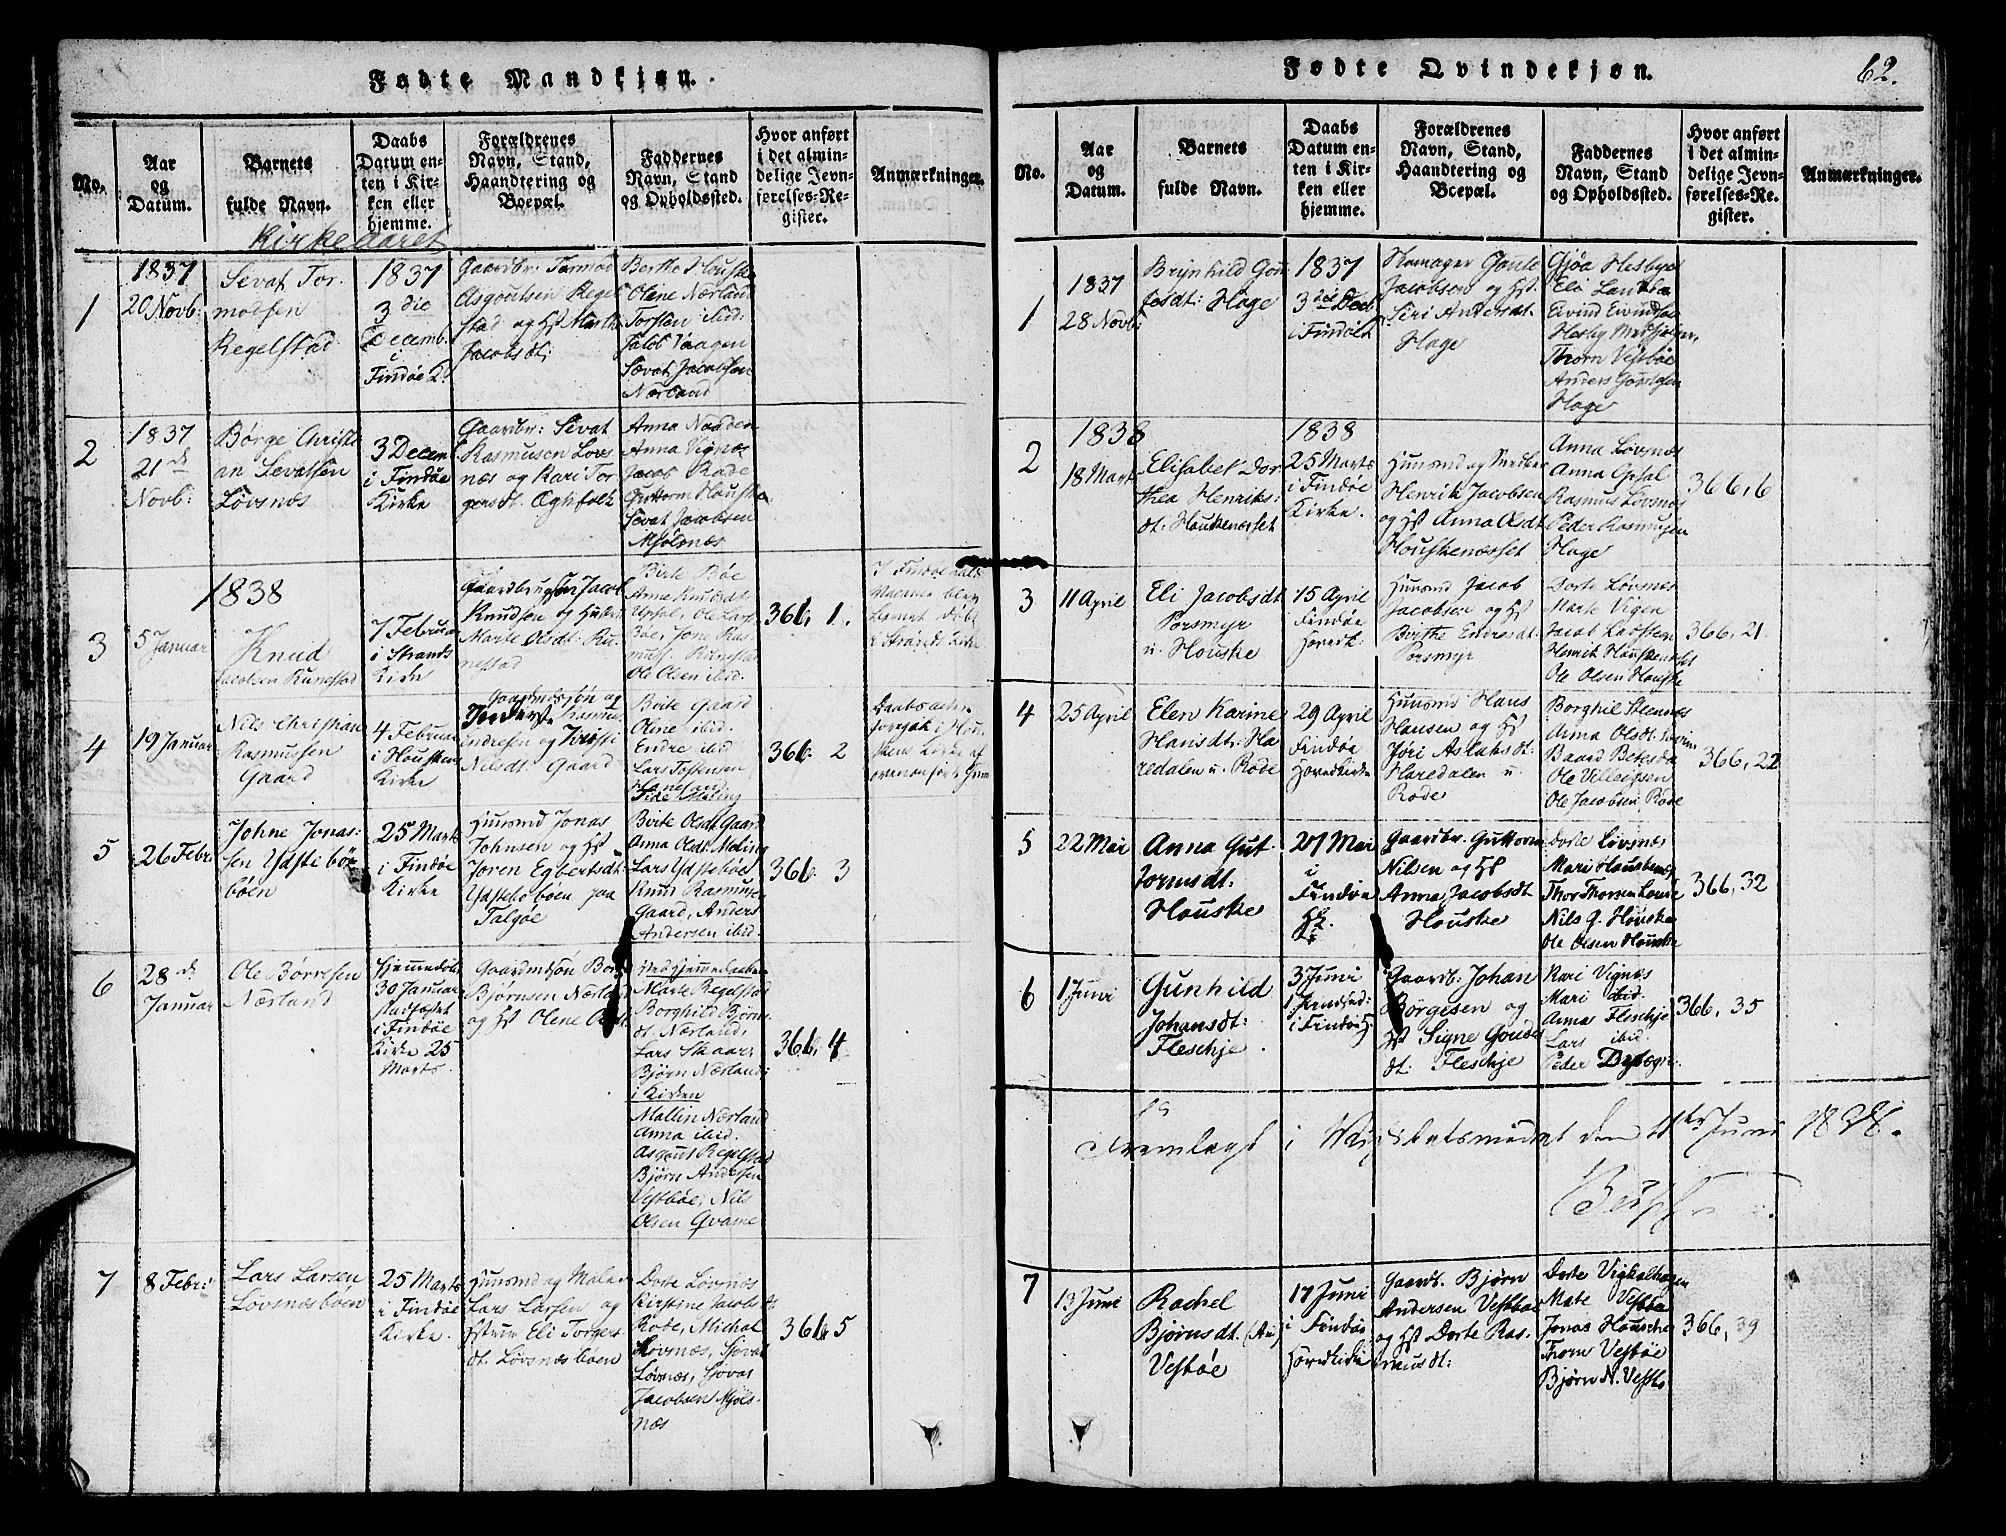 Fødte Mandkjøn.
No.
Aar
og
Datum.
Barnets
fulde Navn.
Daabs
Datum en-
ten i Kir-
ken eller
hjemme.
Forældrenes
Navn, Stand,
Haandtering og
Boepæl.
Faddernes
Navn, Stand
og Opholdssted.
Hvor anført
i det almin-
delige Jevn-
førelses-Re-
gister.
Anmærkninger.
Kirkeaaret
1
1837
20 Novb:
Sevat Tor-
modsen
Regelstad
1837
3 die
Decemb.
i
Findøe K.
Gaardbr: Tormod
Asgoutsen Regel
stad og Hst Marthe
Jacobsdt:
Berthe Houske
Olene Nærland
Torsten ibid:
Jacob Vaagen
Sevat Jacobsen
Nærland
2
1837
21 d
Novb:
Børge Christi
an Sevatsen
Løvsnæs
3 Decemb
i Findøe
Kirke
Gaardbr: Sevat
Rasmusen Lovs
næs og Kari Tor
gersdt. Ægtefolk
Anna Nadden
Anna Vignæs
Jacob Rode
Guttorm Houske
Sevat Jacobsen
Mjølsnæs
1838
3
5 Januar
Knud
Jacobsen Runestad
7 Februar
i Strands
Kirke
Gaardbrugeren Jacob
Knudsen og Hustru
Marte Olsdt: Ru-
nestad
Birte Bøe
Anne Knudsdt
Opsal, Ole Lars
Bøe, Jone Ras
mus. Runestad
Ole Olsen ibid.
366, 1.
I Findøe
blev
Barnet døbt
i Strands Kirke
4
19 Januar
Nils Christian
Rasmussen
Gaard
4 Februar
i Houskens
Kirke
Gaardmdssøn og
Inderste Rasmus
Endresen og Kristi
Nilsdt: Gaard
Birte Gaard
Oline ibid.
Endre ibid
Lars Tostensen
Hanesand
Fike Meling
366. 2
i Hou
skens Kirke af
ovenanførte Grund
5
26 Febr:
Johne Jonas:
sen Ydstebø
bøen
25 Marts
i Findøe
Kirke
Huusmd Jonas
Johnsen og Hst
Joren Egbertsdt:
Ydstebøbøen paa
Talgøe
Birte Olsdt. Gaard
Anna Olsdt. Meling
Lars Ydstebøe
Knud Rasmusen
Gaard, Anders
Andersen ibid.
366. 3
6
28 d
Januar
Ole Børresen
Nærland
Hjemmedøbt
30 Januar
stadfæstet
i Findøe
Kirke 25
Marts.
Gaardmdsøn Børre
Bjørnsen Nærland
og Hst Olene Olsdt.
Ved Hjemmedaaben
Marte Regelstad
Borghild Bjørns
dt. Nærland,
Lars Skaar
Bjørn Nærland:
i Kirken
Mallin Nærland
Anna ibid.
Asgout Regelstad
Bjørn Andersen
Vestbøe, Nils
Olsen Qvame
366, 4
7
8 Febr:
Lars Larsen
Løvsnæsbøen
25 Marts
i Findøe
Kirke.
Huusmd og Maler
Lars Larsen og
Hstrue Eli Torgers
dt. Løvsnæsbøen
Dorte Løvsnæs
Kirstine Jacobsdt.
Rode, Michal
Løvsnæs, Sjovat
Løvsnæs, Sjovat
Jacobsen Mjøls-
næs
366 5
Fødte Qvindekjøn.
62.
No.
Aar
og
Datum.
Barnets
fulde Navn.
Daabs
Datum en-
ten i Kir-
ken eller
hjemme.
Forældrenes
Navn, Stand,
Haandtering og
Boepæl.
Faddernes
Navn, Stand
og Opholdssted.
Hvor anført
i det almin-
delige Jevn-
førelses-Re-
gister.
Anmærkninger.
1
1837
28 Novb:
Brynhild Gou
tesdt: Hage
1837
3 die Decb
i Findøe K
Goute
Jacobsen og Hst.
Siri Andersdt.
Hage
Gjøa Hesbye
Eli
Eivind Eivindsen
Hesby
Thorn Vestbøe
Anders Goutesen
Hage
2
1838
18 Marts
Elisabet Dor
thea Henriks:
dt: Houskenæsset
1838
25 Marts
i Findøe
Kirke.
Huusmd og Snedker
Henrik Jacobsen
og Hst Anna Olsdt
Houskenæsset
Anna Løvsnæs
Anna Opsal
Rasmus Løvsnæs
Peder Rasmusen
Hage
366, 6
3
11 April
Eli Jacobsdt
Porsmyr
u. Houske
15 April
Findøe
Hovedk:
Huusmd Jacob
Jacobsen og Hst
Birthe Endresdt.
Porsmyr
Dorte Løvsnæs
Marte Vigen
Jacob Ladsten
Henrik Houskenæsset
Ole Olsen Houske
366, 21.
4
25 April
Elen Karine
Hansdt: Ha
redalen u. Rode
29 April
Findøe
Hovedkirke
Huusmd Hans
Hansen og Hst
Jøri Aslaksdt.
Haredalen u.
Rode
Borghil Steennæs
Anna Olsdt.
Baard Betesda
Ole Villeigsen
Ole Jacobsen Rode
366, 22
5
22 Mai
Anna Gut-
tormsdt.
Houske
27 Mai
i
Findøe
HK.
Gaardbr. Guttorm
Nilsen og Hst
Anna Jacobsdt
Houske
Dorte Løvsnæs
Mari Houskenæs
Thor Thorsen
Nils G. Houske
Ole Olsen Houske
366, 32
6
1 Juni
Gunhild
Johansdt:
Fleschje.
3 Juni
i Findøe H.
Gaardb: Johan
Børgesen og
Hst Signe Goutes
dt: Fleschje
Kari Vignæs
Mari ibid.
Anna Fleschje
Lars ibid
Peder
366, 35
Fremlagt i den 11te Juni 1838.
7
13 Juni
Rachel
Bjørnsdt.
Vestbøe
17 Juni
i Findøe
Hovedkirke
Gaardb. Bjørn
Andersen Vestbøe
og Hst Dorte Ras-
musdt:
Dorte Vigkalhagen
Mate Vestbøe
Jonas Houschen
Thorn Vestbøe
Bjørn N. Vestbø
366, 39